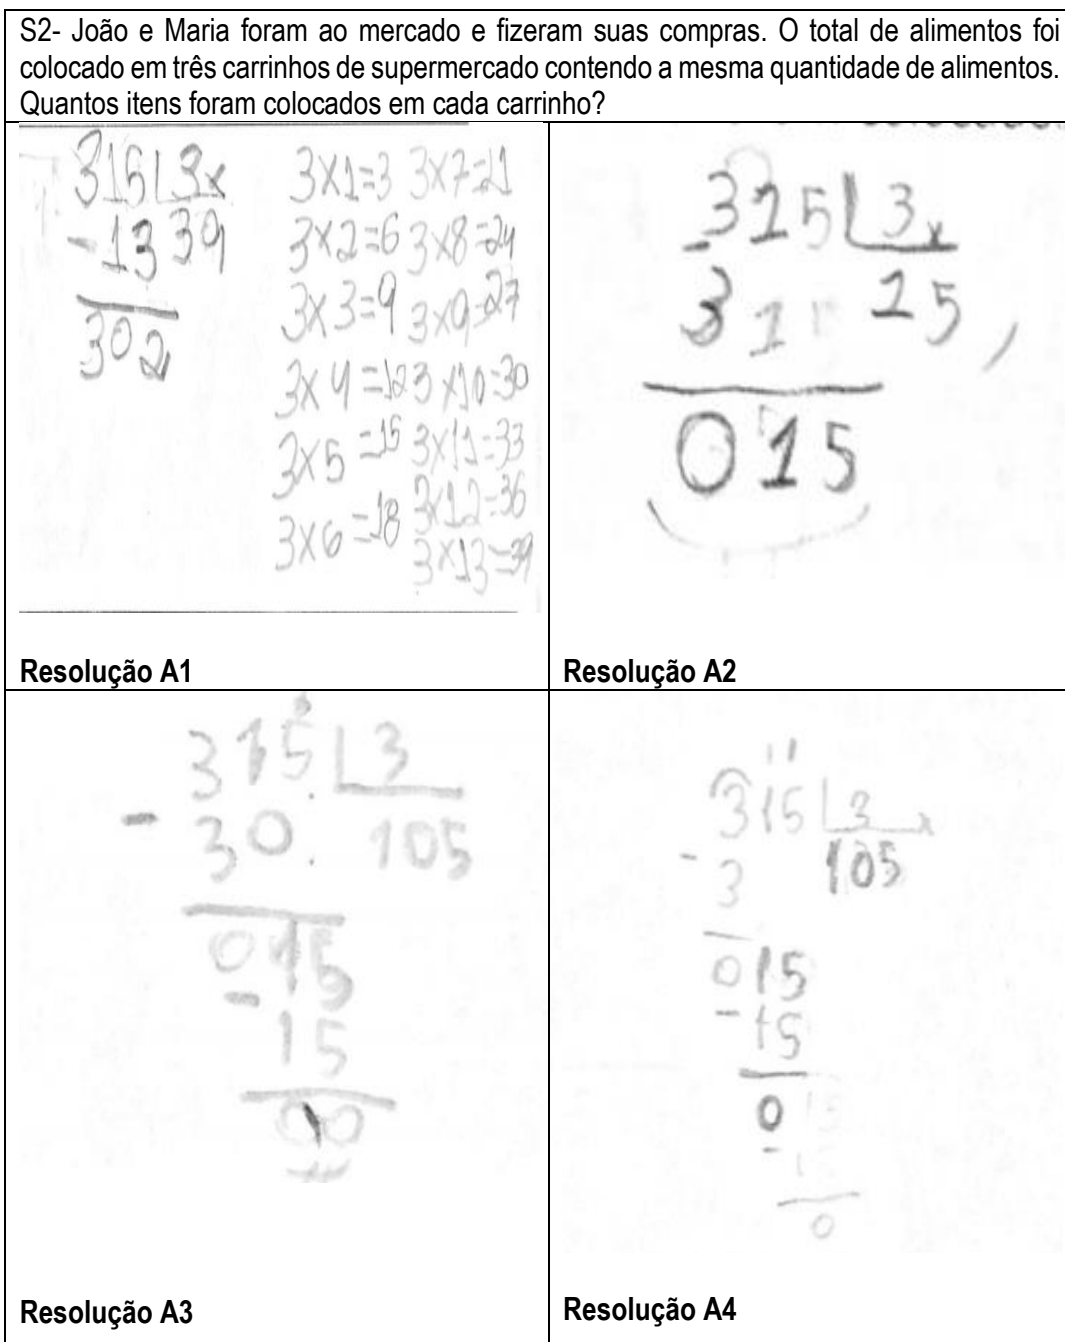 S2- João e Maria foram ao mercado e fizeram suas compras. O total de alimentos foi
colocado em três carrinhos de supermercado contendo a mesma quantidade de alimentos.
Quantos itens foram colocados em cada carrinho?
315 3x
-13 39
302
3x1=3 3x7=21
3x2=6 3x8=24
3x3=9 3x9=27
3x4=12 3x10=30
3x5=15 3x11=33
3x6=18 3x12=36
3x13=39
Resolução A1
315 3x
-31 15
015
Resolução A2
315 3
-30 105
015
-15
00
Resolução A3
11
315 3x
-3 105
015
-15
0
-
0
Resolução A4